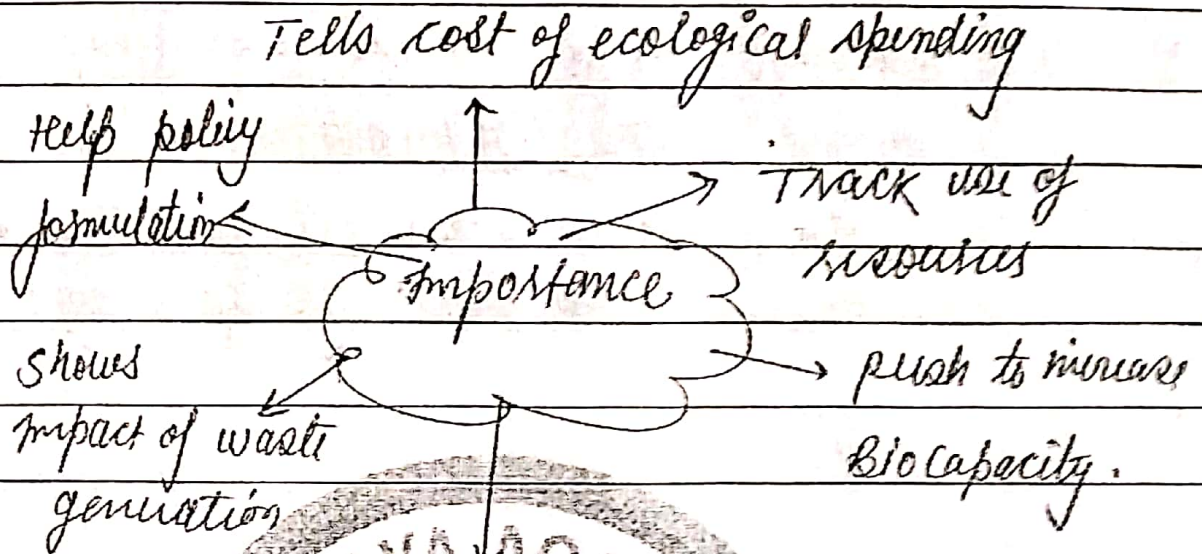 Tells cost of ecological spending
Help policy
formulation
Track use of
resources
Importance
Shows
impact of waste
generation
push to increase
Biocapacity.